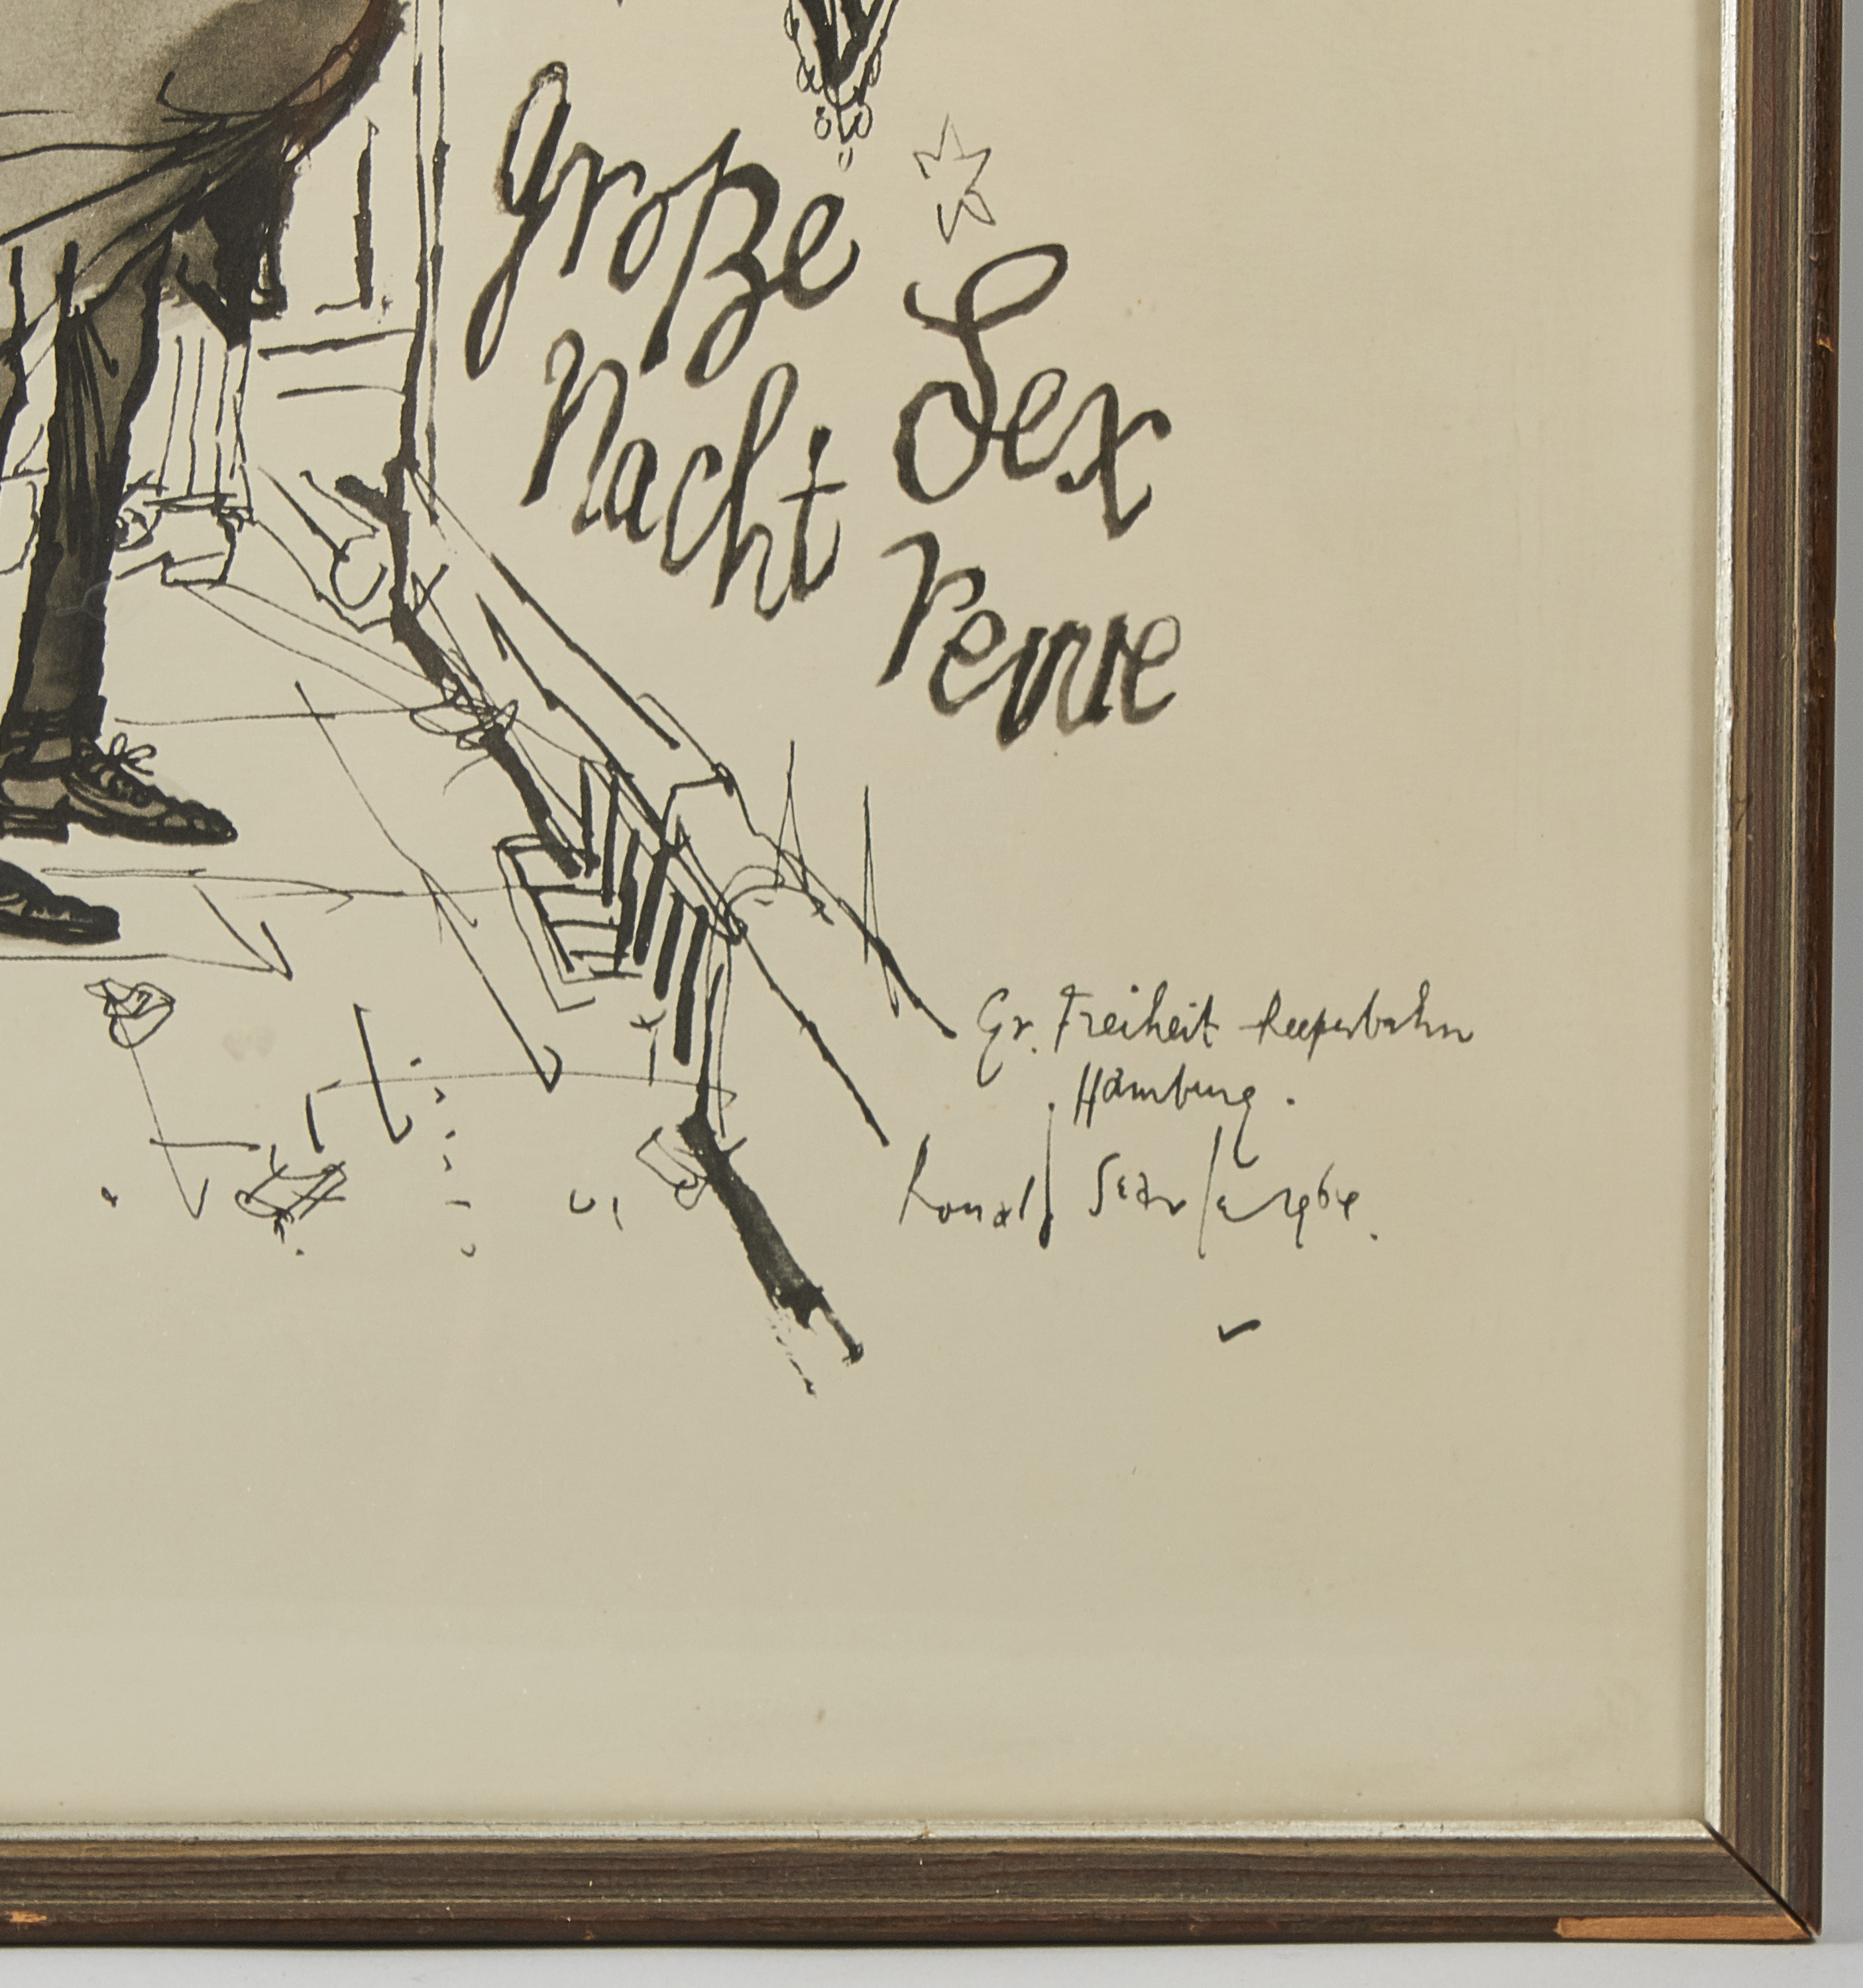 große
Nacht
Sex
revue
Gr. Freiheit Reeperbahn
Hamburg.
Ronald Searle 1964.